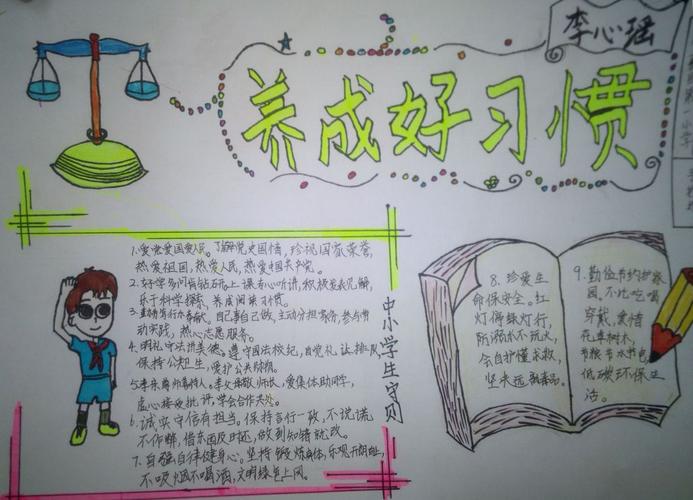 李心瑶
养成好习惯
中小学生守则
1.爱党爱国爱人民。了解党史国情，珍视国家荣誉，
热爱祖国，热爱人民，热爱中国共产党。
2.好学多问肯钻研。上课专心听讲，积极发表见解，
乐于科学探索，养成阅读习惯。
3.勤劳笃行乐奉献。自己事自己做，主动分担家务，参与劳
动实践，热心志愿服务。
4.明礼守法讲美德。遵守国法校纪，自觉礼让排队，
保持公共卫生，爱护公共财物。
5.孝亲尊师善待人。孝父母敬师长，爱集体助同学，
虚心接受批评，学会合作共处。
6.诚实守信有担当。保持言行一致，不说谎
不作弊，借东西及时还，做到知错就改。
7.自强自律健身心。坚持锻炼身体，乐观开朗向上，
不吸烟不喝酒，文明绿色上网。
8.珍爱生
命保安全。红
灯停绿灯行，
防溺水不玩火，
会自护懂求救，
坚决远离毒品。
9.勤俭节约护家
园。不比吃喝
穿戴，爱惜
花草树木，
节粮节水节电，
低碳环保生
活。